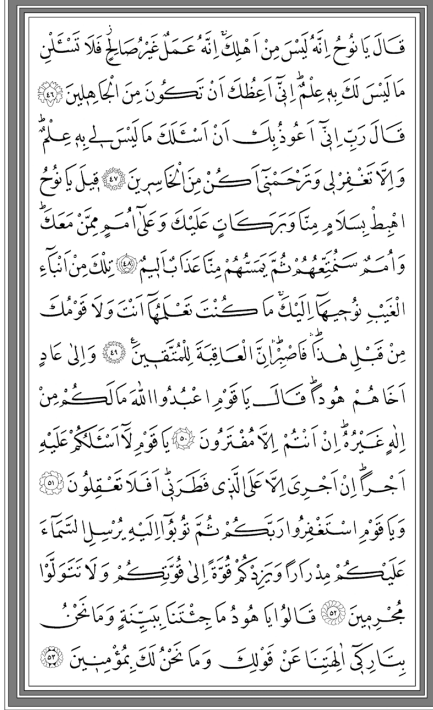 قَالَ يَا نُوحُ اِنَّهُ لَيْسَ مِنْ اَهْلِكَۚ اِنَّهُ عَمَلٌ غَيْرُ صَالِحٍۗ فَلَا تَسْـَٔلْنِ
مَا لَيْسَ لَكَ بِهٖ عِلْمٌۜ اِنّٖٓي اَعِظُكَ اَنْ تَكُونَ مِنَ الْجَاهِلٖينَ ﴿٤٦﴾
قَالَ رَبِّ اِنّٖٓي اَعُوذُ بِكَ اَنْ اَسْـَٔلَكَ مَا لَيْسَ لٖي بِهٖ عِلْمٌۜ
وَاِلَّا تَغْفِرْ لٖي وَتَرْحَمْنٖٓي اَكُنْ مِنَ الْخَاسِرٖينَ ﴿٤٧﴾ قٖيلَ يَا نُوحُ
اهْبِطْ بِسَلَامٍ مِنَّا وَبَرَكَاتٍ عَلَيْكَ وَعَلٰٓى اُمَمٍ مِمَّنْ مَعَكَۜ
وَاُمَمٌ سَنُمَتِّعُهُمْ ثُمَّ يَمَسُّهُمْ مِنَّا عَذَابٌ اَلٖيمٌ ﴿٤٨﴾ تِلْكَ مِنْ اَنْبَٓاءِ
الْغَيْبِ نُوحٖيهَٓا اِلَيْكَۚ مَا كُنْتَ تَعْلَمُهَٓا اَنْتَ وَلَا قَوْمُكَ
مِنْ قَبْلِ هٰذَاۜ فَاصْبِرْۜ اِنَّ الْعَاقِبَةَ لِلْمُتَّقٖينَ۟ ﴿٤٩﴾ وَاِلٰى عَادٍ
اَخَاهُمْ هُودًاۜ قَالَ يَا قَوْمِ اعْبُدُوا اللّٰهَ مَا لَكُمْ مِنْ
اِلٰهٍ غَيْرُهُۜ اِنْ اَنْتُمْ اِلَّا مُفْتَرُونَ ﴿٥٠﴾ يَا قَوْمِ لَٓا اَسْـَٔلُكُمْ عَلَيْهِ
اَجْرًاۜ اِنْ اَجْرِيَ اِلَّا عَلَى الَّذٖي فَطَرَنٖيۜ اَفَلَا تَعْقِلُونَ ﴿٥١﴾
وَيَا قَوْمِ اسْتَغْفِرُوا رَبَّكُمْ ثُمَّ تُوبُٓوا اِلَيْهِ يُرْسِلِ السَّمَٓاءَ
عَلَيْكُمْ مِدْرَارًا وَيَزِدْكُمْ قُوَّةً اِلٰى قُوَّتِكُمْ وَلَا تَتَوَلَّوْا
مُجْرِمٖينَ ﴿٥٢﴾ قَالُوا يَا هُودُ مَا جِئْتَنَا بِبَيِّنَةٍ وَمَا نَحْنُ
بِتَارِكٖٓي اٰلِهَتِنَا عَنْ قَوْلِكَ وَمَا نَحْنُ لَكَ بِمُؤْمِنٖينَ ﴿٥٣﴾